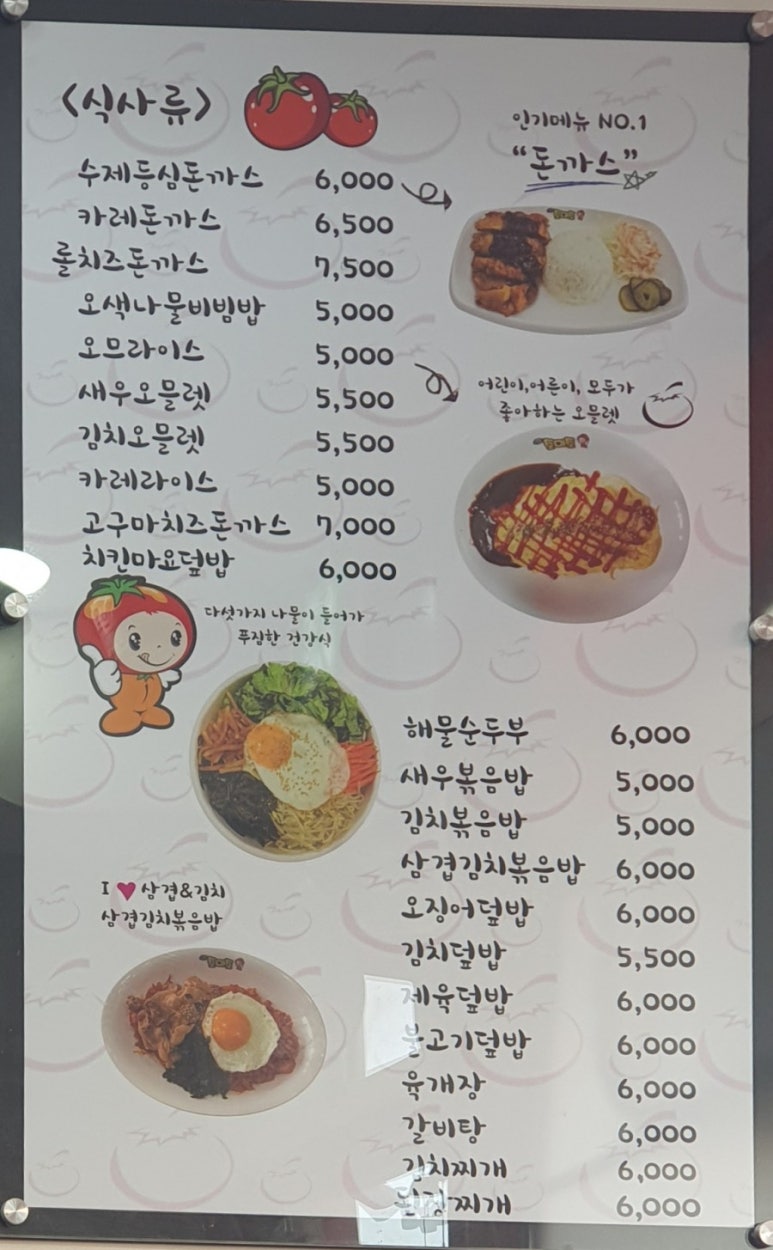 <식사류>
수제등심돈까스 6,000
카레돈까스 6,500
롤치즈돈까스 7,500
오색나물비빔밥 5,000
오므라이스 5,000
새우오믈렛 5,500
김치오믈렛 5,500
카레라이스 5,000
고구마치즈돈까스 7,000
치킨마요덮밥 6,000
인기메뉴 NO.1
“돈까스”
어린이,어른이, 모두가
좋아하는 오믈렛
다섯가지 나물이 들어가
푸짐한 건강식
I ♥ 삼겹&김치
삼겹김치볶음밥
해물순두부 6,000
새우볶음밥 5,000
김치볶음밥 5,000
삼겹김치볶음밥 6,000
오징어덮밥 6,000
김치덮밥 5,500
제육덮밥 6,000
불고기덮밥 6,000
육개장 6,000
갈비탕 6,000
김치찌개 6,000
된장찌개 6,000